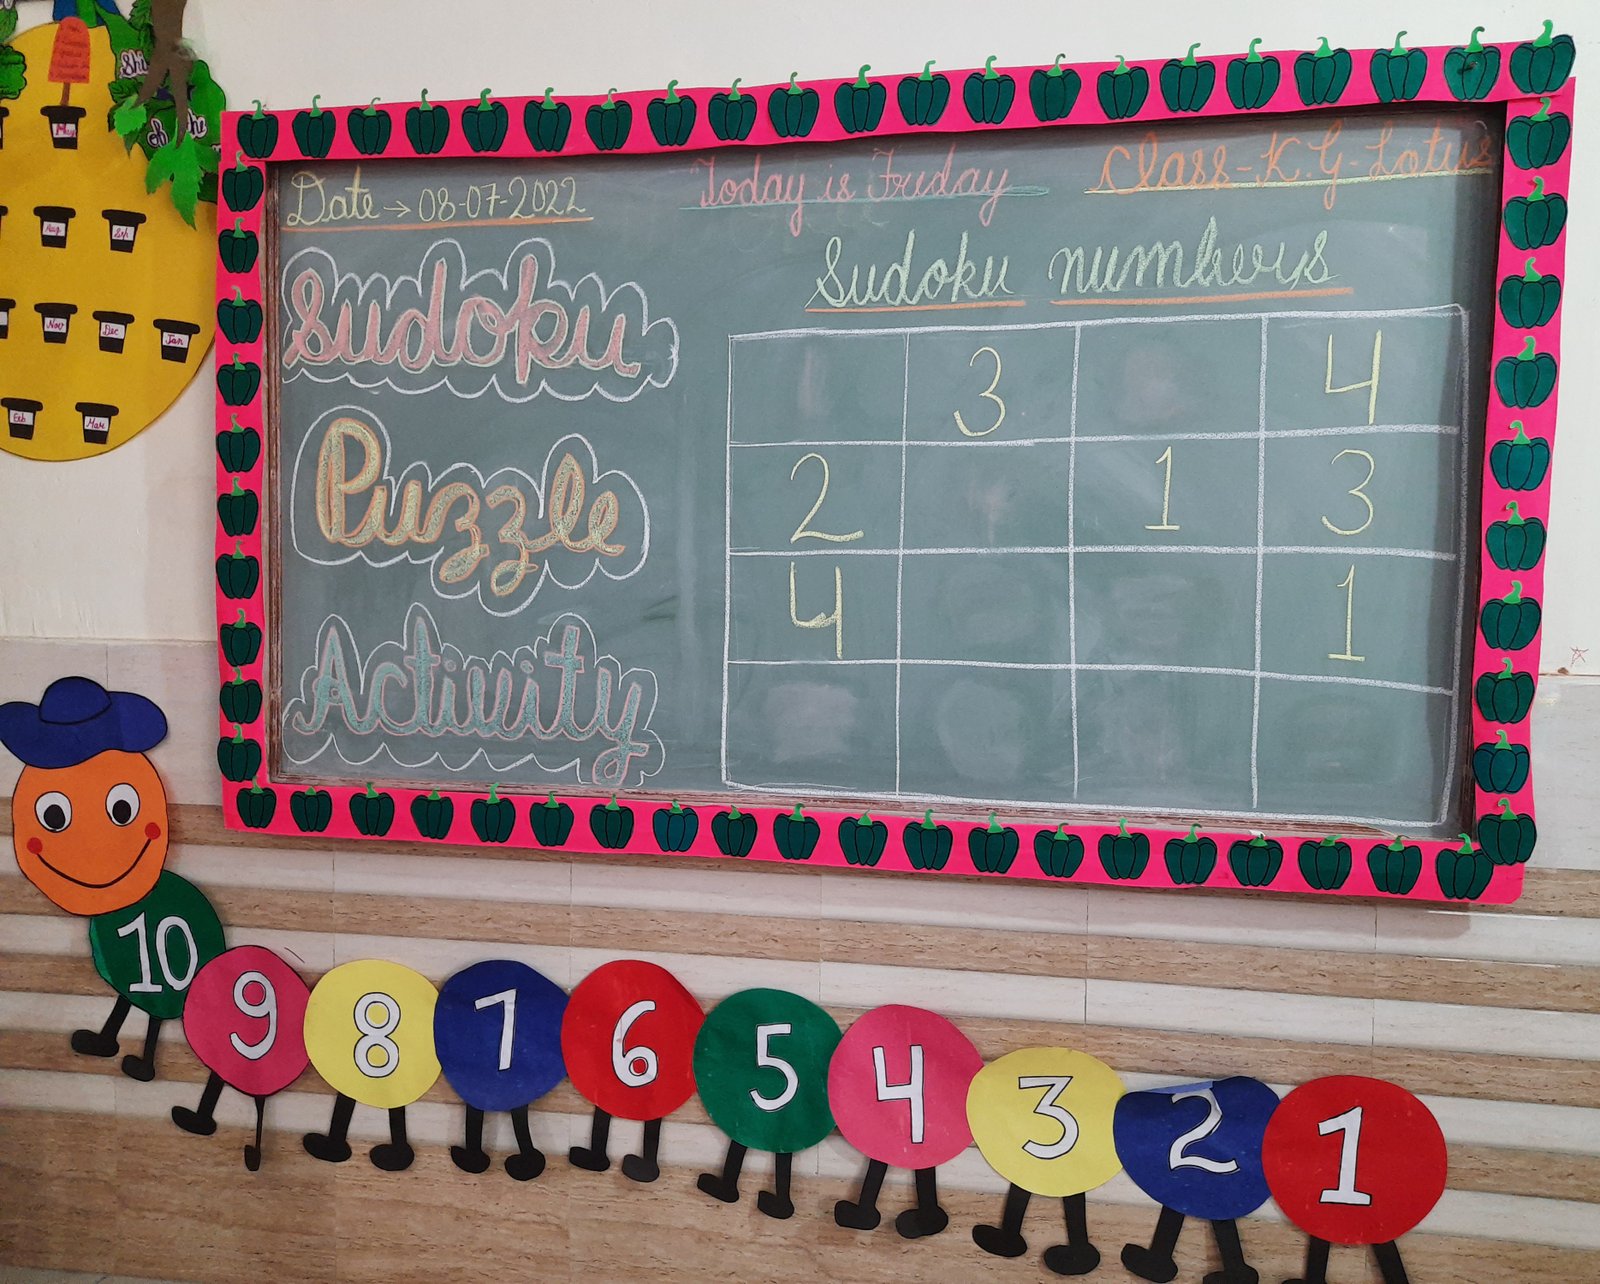 Shi
May
of the
Aug
Sep
Nov
Dec
Jan
Feb
Mar
Date → 08-07-2022
Today is Friday
Class-K.G-Lotus
Sudoku
Puzzle
Activity
Sudoku numbers
3 4
2 1 3
4 1
10 9 8 7 6 5 4 3 2 1